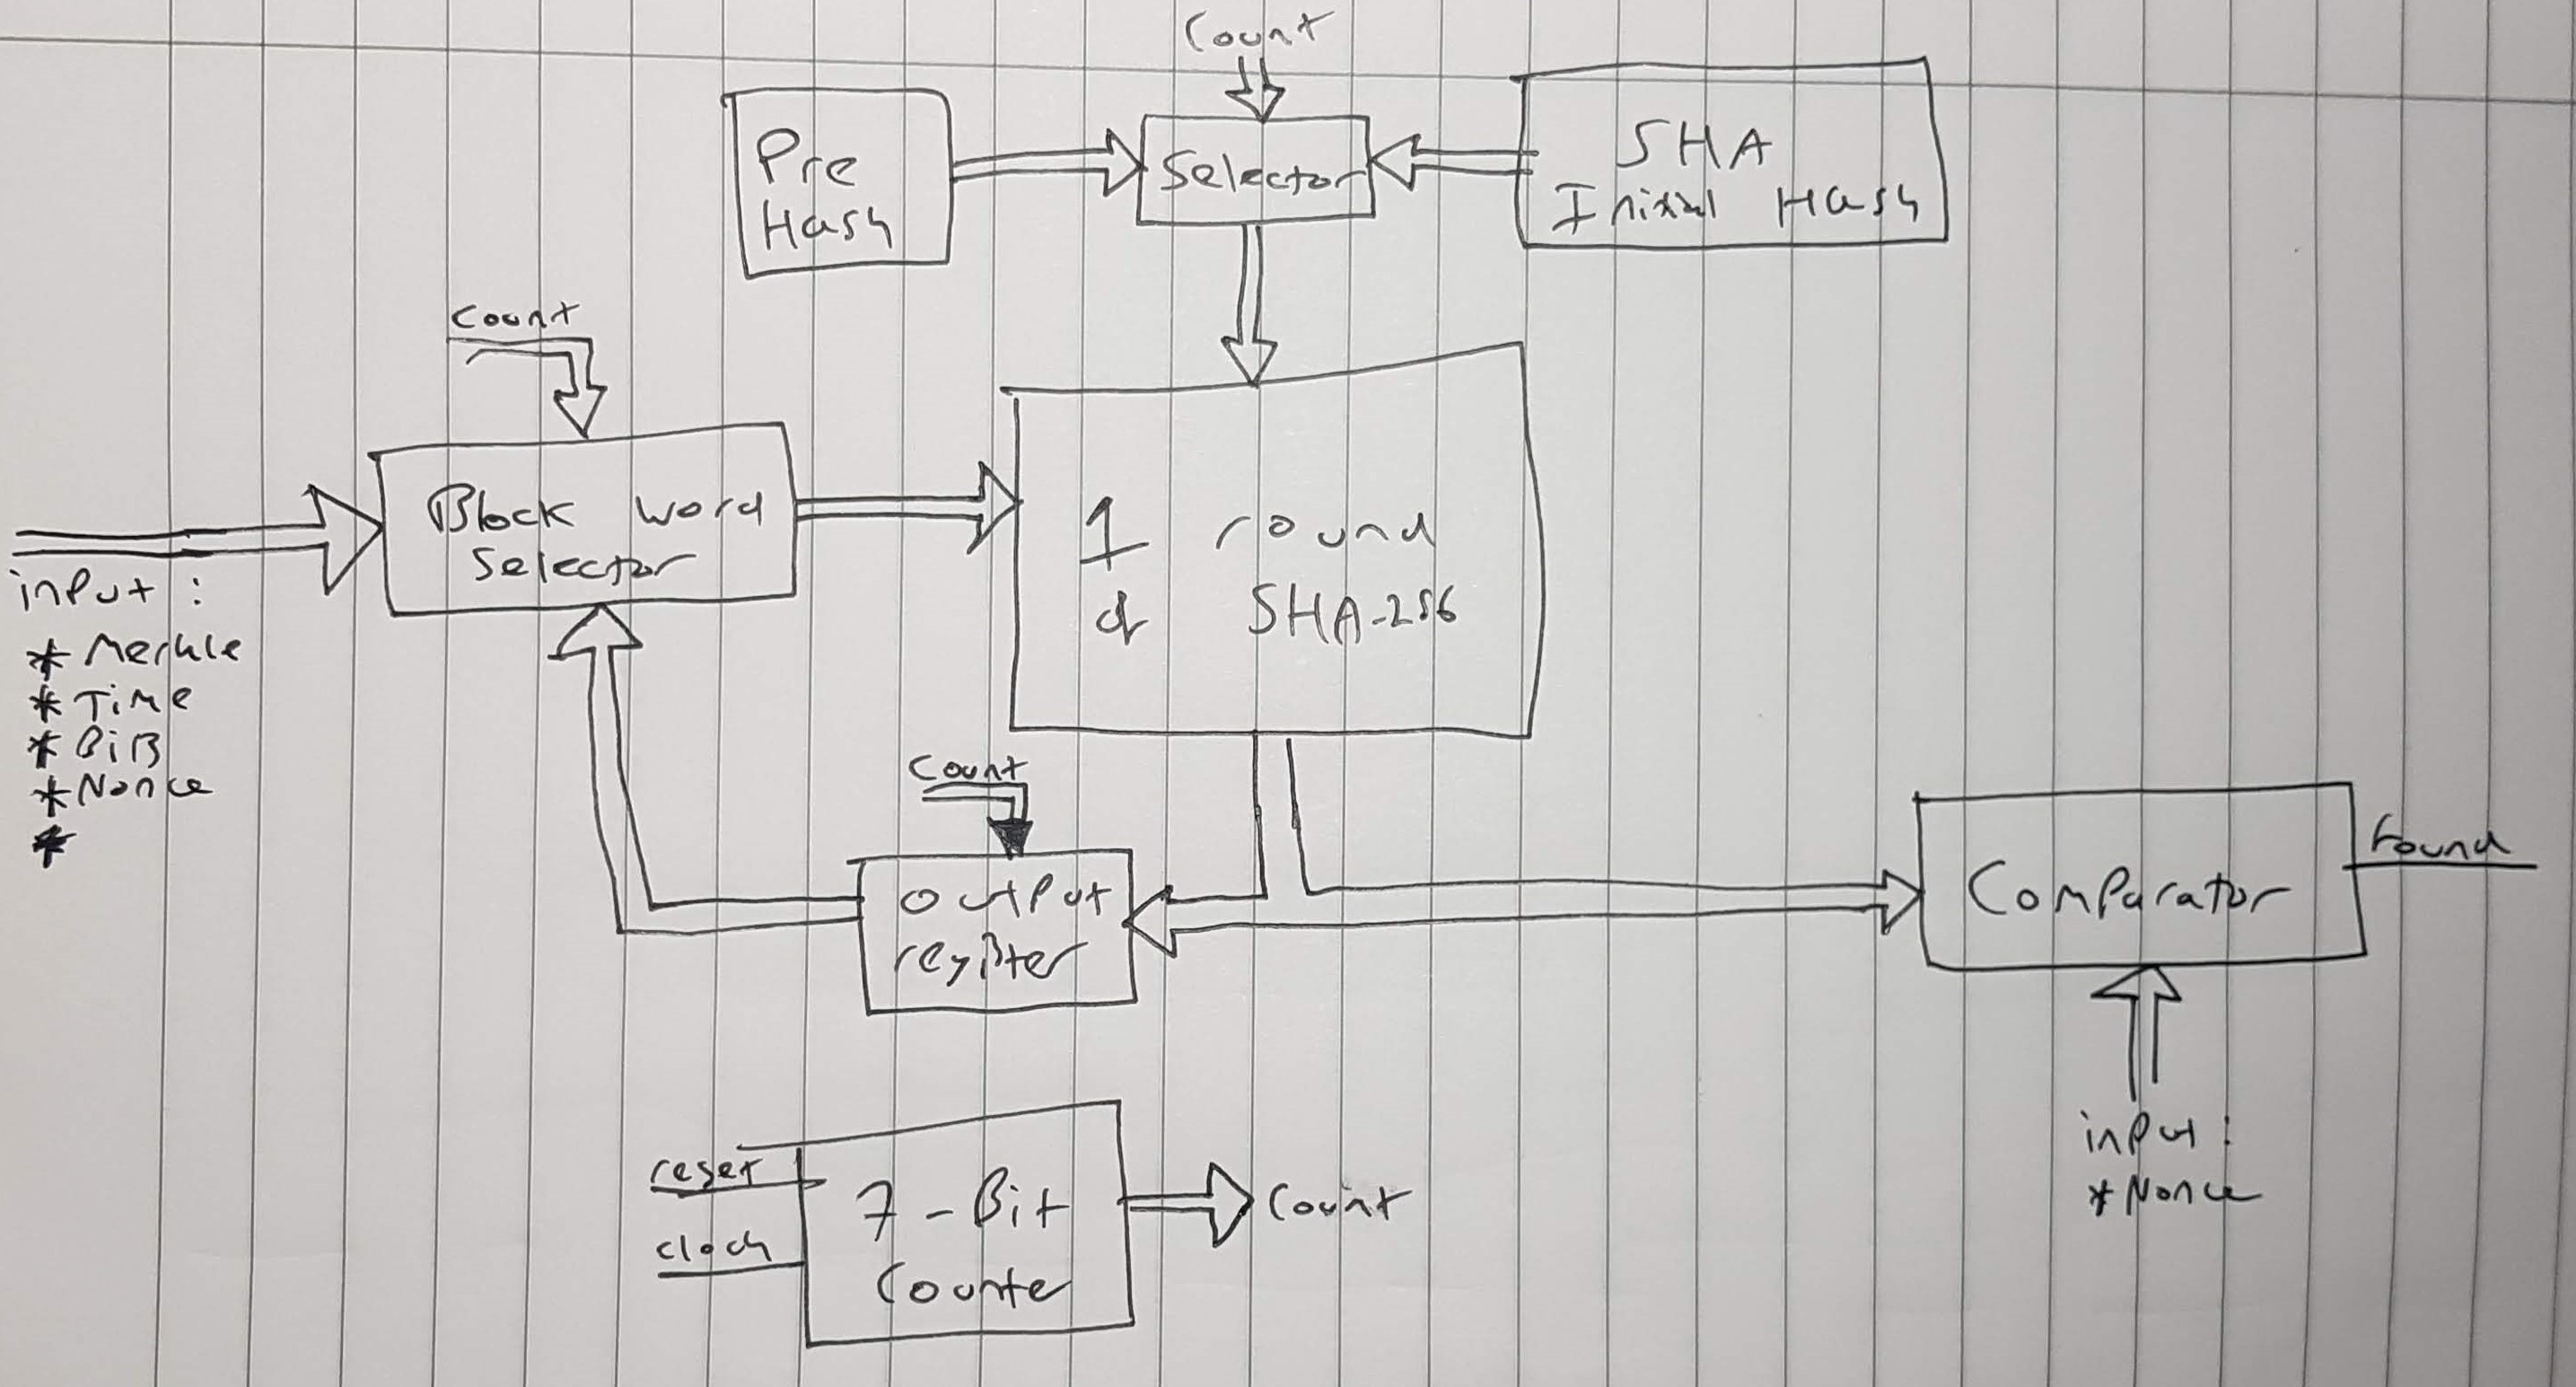 Count
Pre
Hash
Selector
SHA
Initial Hash
Count
Block word
Selector
1 round
of SHA-256
input :
* Merkle
* Time
* Bits
* Nonce
*
Count
output
register
Comparator
Found
input :
* Nonce
reset
clock
7-Bit
Counter
Count